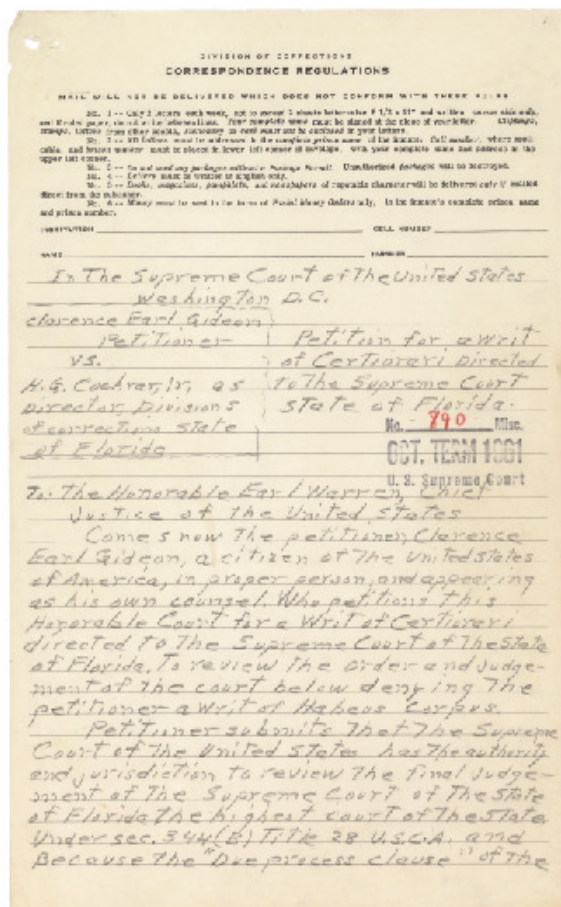 DIVISION OF CORRECTIONS
CORRESPONDENCE REGULATIONS
MAIL WILL NOT BE DELIVERED WHICH DOES NOT CONFORM WITH THESE RULES
No. 1 -- Only 2 letters each week, not to exceed 2 sheets letter-size 8 1/2 x 11" and written on one side only,
and if ruled paper, do not write between lines. Your complete name must be signed at the close of your letter.
letters from other people, stationery in your letters.
No. 2 -- All letters must be addressed in the complete prison name of the inmate. Cell number, where
and prison number must be placed in lower left corner of envelope, with your complete name and address in the
upper left corner.
No. 3 -- Do not send any packages without a Package Permit. Unauthorized packages will be destroyed.
No. 4 -- Letters must be written in English only.
No. 5 -- Books, magazines, pamphlets, and newspapers of reputable character will be delivered only if mailed
direct from the publisher.
No. 6 -- Money must be sent in the form of Postal Money Orders only, in the inmate's complete prison name
and prison number.
INSTITUTION CELL NUMBER
NAME NUMBER
In The Supreme Court of The United States
Washington D.C.
Clarence Earl Gideon
Petitioner Petition for a Writ
vs. of Certiorari Directed
H.G. Cochran, Jr., as to The Supreme Court
Director, Divisions State of Florida.
of corrections State No. 890 Misc.
of Florida OCT. TERM 1961
U. S. Supreme Court
To: The Honorable Earl Warren, Chief
Justice of the United States
Comes now The petitioner, Clarence
Earl Gideon, a citizen of The United states
of America, in proper person, and appearing
as his own counsel. Who petitions this
Honorable Court for a Writ of Certiorari
directed to The Supreme Court of The State
of Florida. To review the order and Judge-
ment of the court below denying The
petitioner a writ of Habeus Corpus.
Petitioner submits That The Supreme
Court of The United States has The authority
and jurisdiction to review The final Judge-
ment of The Supreme Court of The State
of Florida the highest court of The State
Under sec. 344(B) Title 28 U.S.C.A. and
Because the "Due process clause" of the